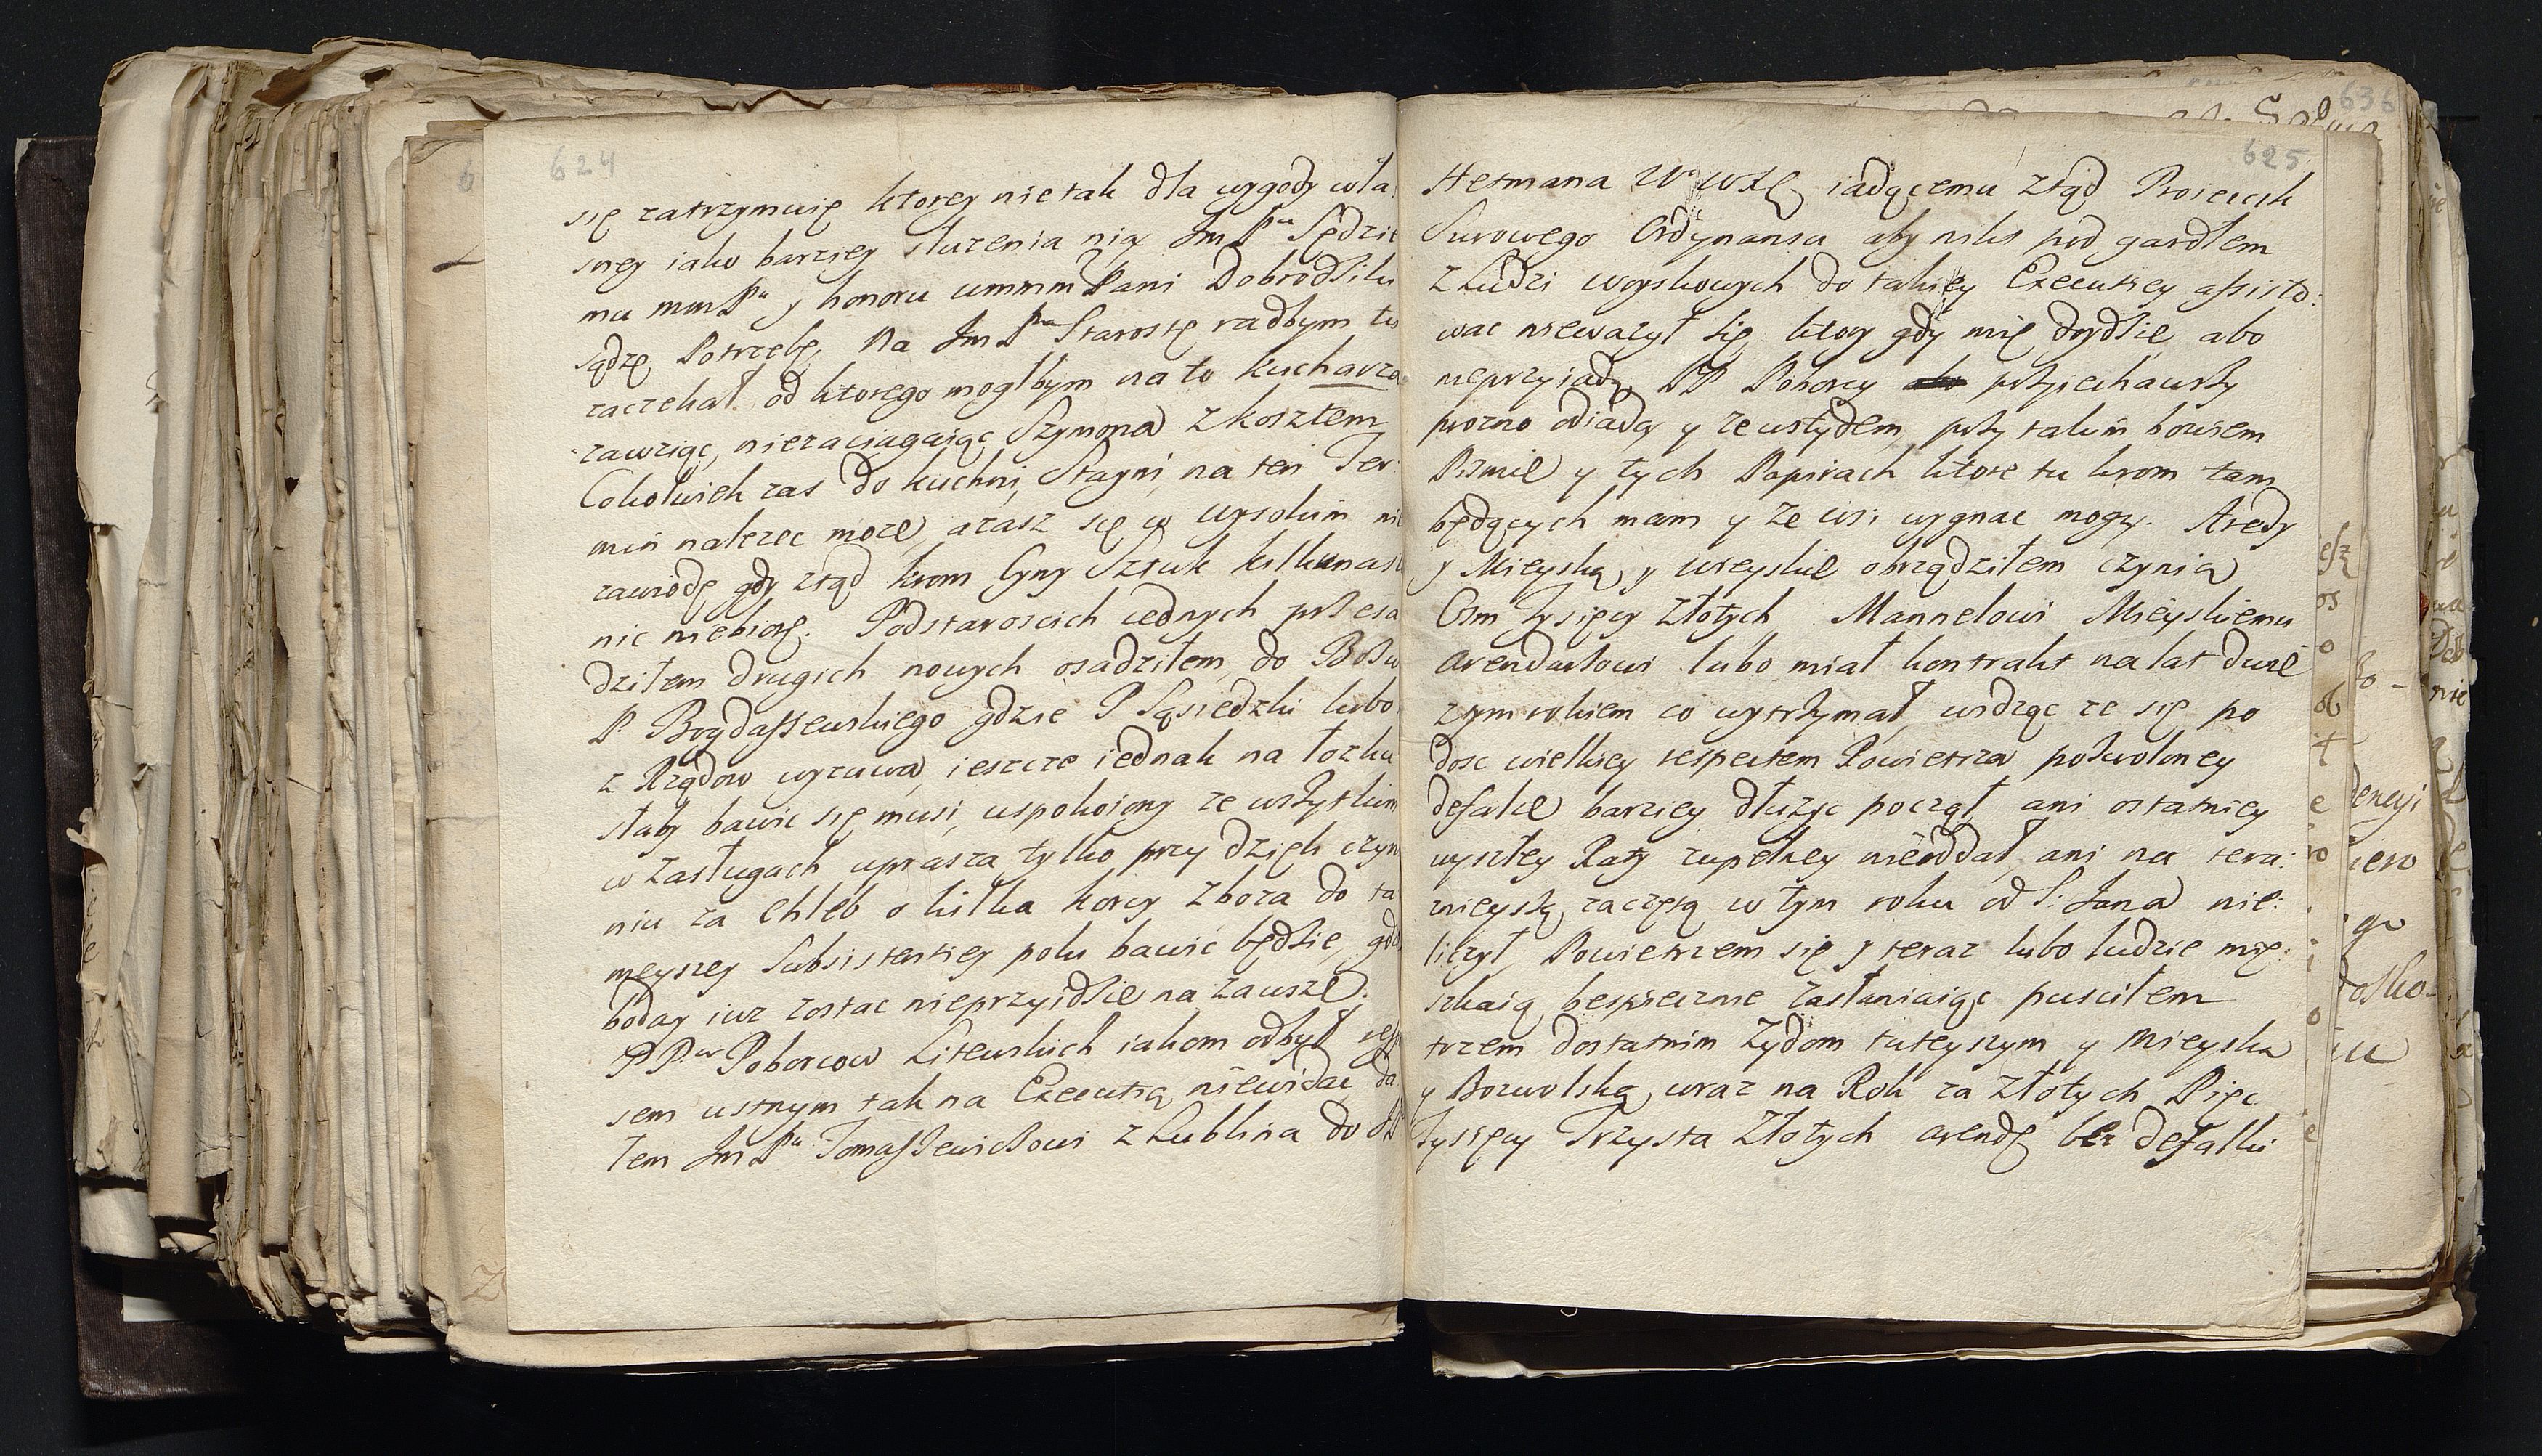 624
się zatrzymuię ktorey nie tak dla wygody wła
sney iako barziey służenia nią Jm Pu Sędzie
mu mm Pu y honoru ummm Pani Dobrodsiki
sądzę Potrzebę. Na Jm Pna Starostę radbym tu
zaczekał od ktorego mogłbym na to kucharza
zawziąc, niezaciagaiąc Szymona z kosztem
Cokolwiek zas do kuchni, Stayni, na ten Ter:
min należec może, arasz się w wysokim nie
zawiodę gdy ztąd krom Sztuk kilkunastu
nic niebiorę. Podstaroscich iednych przesa
dziłem drugich nowych osadziłem, do
P. Bogdaszewskiego gdzie P Sąsiedzki lubo
z Rządow wyzuwa, ieszcze iednak na łozku
słaby bawic się musi, uspokoiony ze wszytkim
w Zasługach uprasza tylko przy dzięk czyn
niu za Chleb o kilka korcy Zboza do ta
meyszey Subsistentiey poki bawic będzie, gdy
boday iuz zostac nieprzyidsie na zawsze.
PPow Poborcow Litewskich iakom odbył
sem ustnym tak na Executią niewidac da
łem Jm Pu Tomaszewiczowi z Lublina do
625
Hetmana W. WXL iadącemu ztąd Proiecik
Surowego Ordynansu aby nikt pod gardłem
z Ludzi woyskowych do takiey Executiey assisto:
wac niewazył się, ktory gdy mię doydsie, abo
nieprzyiadą PP Poborcy przyiechawszy
prozno odiadą y ze wstydem, przy takim bowiem
Pismie y tych Papirach ktore tu krom tam
będących mam y ze wsi wygnac mogę. Aredy
y Mieyską y wieyskie obrządziłem czynią
Osm Tysięcy Złotych. Mannelowi Mieyskiemu
Arendarzowi lubo miał kontrakt na lat dwie
z tym rokiem co wytrzymał, widząc ze się po
dosc wielkiey respectem Powietrza pozwoloney
defalce barziey dłuzyc począł, ani ostatniey
wyszłey Raty zupełney nieoddał, ani na tera:
znieyszą zaczętą w tym roku od S: Jana nie:
liczył, Powietrzem się y teraz lubo ludzie mię:
szkaią bespiecznie zasłaniaiąc pusciłem
trzem dostatnim Zydom tuteyszym y Mieyską
y Bozwolską wraz na Rok za Złotych Pięc
Tysięcy Trzysta Złotych arendę bez defalki
636